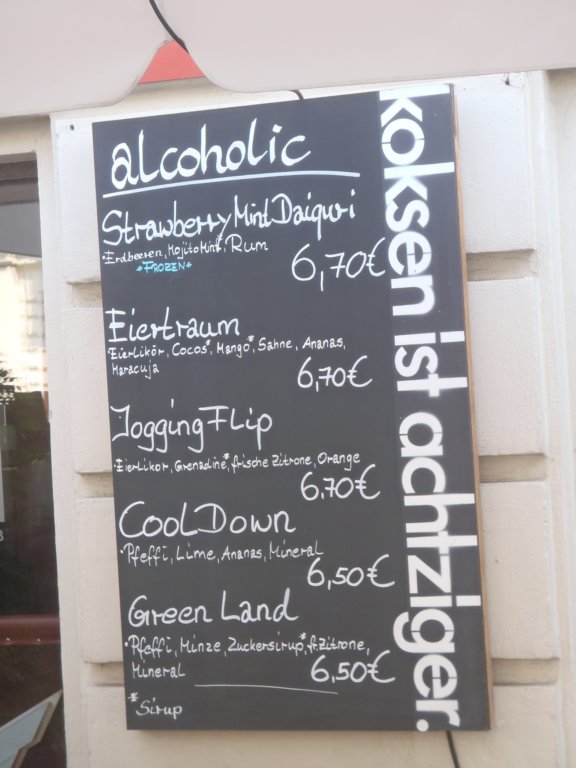 alcoholic
Strawberry Mint Daiquiri
·Erdbeeren, Mojito Mint*, Rum
*FROZEN*
6,70€
Eiertraum
·Eierlikör, Cocos*, Mango*, Sahne, Ananas,
Maracuja
6,70€
Jogging Flip
·Eierlikör, Grenadine*, frische Zitrone, Orange
6.70€
CooL Down
·Pfeffi, Lime, Ananas, Mineral
6,50€
Green Land
·Pfeffi, Minze, Zuckersirup*, fr. Zitrone,
Mineral
6,50€
*Sirup
koksen ist achtziger.